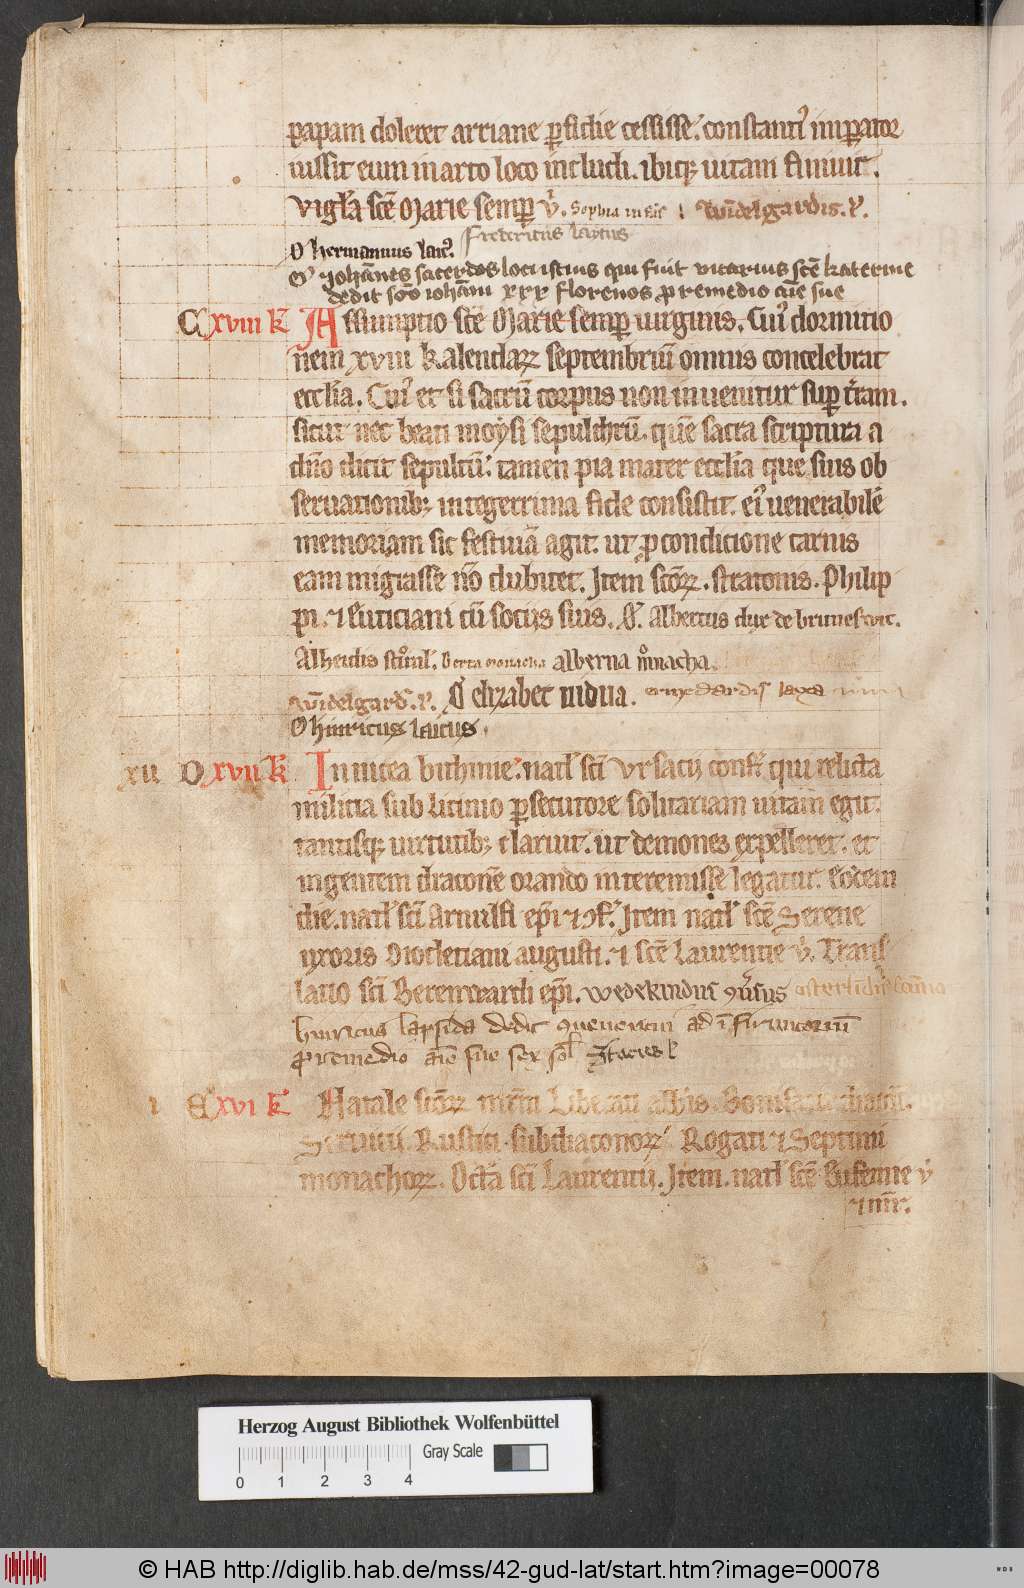 papam doleret arriane ꝑfidie cessisse. constantiꝰ imꝑator
iussit eum in arto loco includi. ibiqꝫ uitam finiuit.
vigl̓a scē Marie semꝑ v̓. Sophia Windelgardis.
Fredericus laycus
O hermannus laicꝰ.
O Iohannes sacerdos loci istius qui fuit vicarius scē katerine
dedit sc̄o ioh̄ani xxx florenos ꝓ remedio aīe sue
C xviii k̄ Assumptio scē Marie semꝑ uirginis. Cuiꝰ dormitio
nem xviii kalendaꝝ septembriū omnis concelebrat
eccl̓ia. Cuiꝰ et si sacrū corpus non inuenitur suꝑ t̓ram.
sicut nec beati moysi sepulchrū. quē sacra scriptura a
dn̄o dicit sepultū. tamen pia mater eccl̓ia que suis ob
seruationibꝫ integerrima fide consistit. eiꝰ uenerabilē
memoriam sic festiuā agit. ut ꝓ condicione carnis
eam migrasse nō dubitet. Item scōꝝ. stratonis. Philip
pi. ⁊ Euticiani cū socijs suis. O. Albertus dux de bruneswic.
Alheidis Berta monacha alberna monacha.
windelgard. O elizabet uidua. ermedardis layca
O hinricus laicus.
xii D xvii k̄ In nicea bithinie. natl̓ sc̄i Vrsacij conf̄. qui relicta
militia sub licinio ꝑsecutore solitariam uitam egit.
tantisqꝫ uirtutibꝫ claruit. ut demones expelleret. et
ingentem draconē orando interemisse legatur. Eodem
die. natl̓ sc̄i Arnulfi ep̄i ⁊ ꝯf̄. Item natl̓ scē Serene
uxoris Diocletiani augusti. ⁊ scē Laurentie v̓. Trans
latio sc̄i Berenwardi ep̄i. wedekindus ꝯuersus
hinricus lapsida dedit conuentui ad īfirmitoriū
ꝓ remedio aīe sue sex sol
i E xvi k̄ Natale scōꝝ mr̄m Liberati abb̄is. Bonifacii diaconi.
Seruuli. Rustici. subdiaconoꝝ Rogati ⁊ Septimi
monachoꝝ. Octā sc̄i Laurentii. Item. natl̓ scē Eufemie v̓
⁊ mr̄.
Herzog August Bibliothek Wolfenbüttel
Gray Scale
0 1 2 3 4
© HAB http://diglib.hab.de/mss/42-gud-lat/start.htm?image=00078